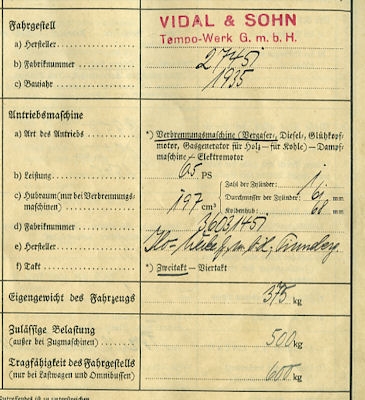 Fahrgestell
VIDAL & SOHN
a) Hersteller
Tempo-Werk G. m. b. H.
b) Fabriknummer
c) Baujahr 1935
Antriebsmaschine
a) Art des Antriebs *) Verbrennungsmaschine (Vergaser-, Diesel-, Glühkopf-
motor, Gasgenerator für Holz — für Kohle) — Dampf-
maschine — Elektromotor
b) Leistung PS
c) Hubraum (nur bei Verbrennungs-
maschinen) 197 cm³
Zahl der Zylinder: 1
Durchmesser der Zylinder: mm
Kolbenhub: mm
d) Fabriknummer
e) Hersteller
f) Takt *) Zweitakt — Viertakt
Eigengewicht des Fahrzeugs 375 kg
Zulässige Belastung
(außer bei Zugmaschinen) 500 kg
Tragfähigkeit des Fahrgestells
(nur bei Lastwagen und Omnibussen) 600 kg